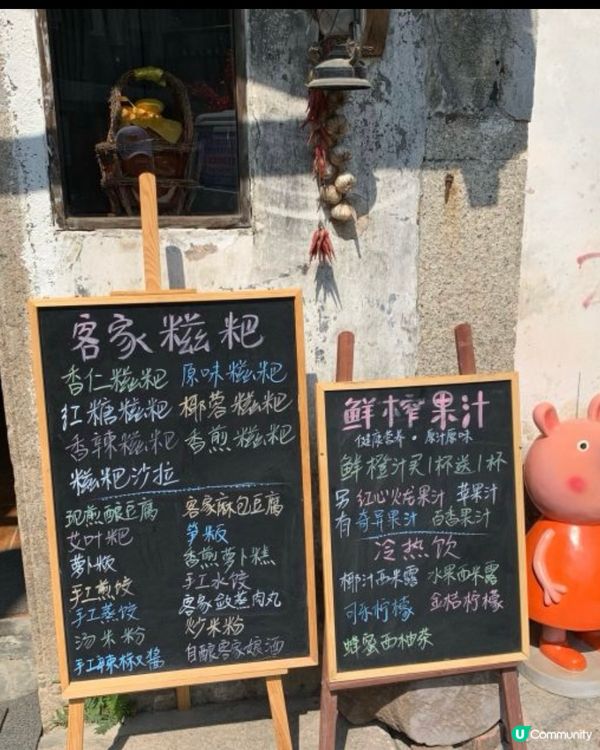 客家糍粑
香仁糍粑 原味糍粑
红糖糍粑 椰蓉糍粑
香辣糍粑 香煎糍粑
糍粑沙拉
现煎酿豆腐 客家麻包豆腐
艾叶粑 笋板
萝卜板 香煎萝卜糕
手工煎饺 手工水饺
手工蒸饺 客家敛蒸肉丸
汤米粉 炒米粉
手工辣椒酱 自酿客家娘酒
鲜榨果汁
健康营养·原汁原味
鲜橙汁买1杯送1杯
另有 红心火龙果汁 苹果汁
奇异果汁 百香果汁
冷热饮
椰汁西米露 水果西米露
柠檬 金桔柠檬
蜂蜜西柚茶
U Community